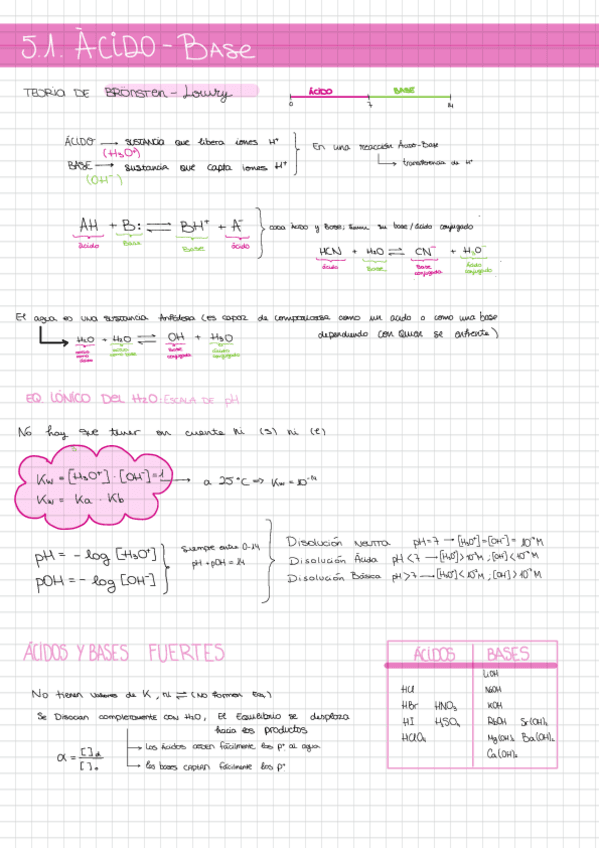 5.1. ÀCIDO - BASE
TEORÍA DE BRÖNSTEN - Lowry
ÁCIDO BASE
0 7 14
ÁCIDO → SUSTANCIA que libera iones H⁺
(H₃O⁺)
BASE → Sustancia que capta iones H⁺
(OH⁻)
En una reacción Ácido-Base
transferencia de H⁺
AH + B: ⇌ BH⁺ + A⁻
ácido Base Base ácido
cada Ácido y Base, tienen su base/ácido conjugado
HCN + H₂O ⇌ CN⁻ + H₃O⁺
ácido Base Base conjugada Ácido conjugado
El agua es una sustancia Anfótera (es capaz de comportarse como un acido o como una base
dependiendo con quien se enfrente)
H₂O + H₂O ⇌ OH + H₃O
actua como ácido actua como base Base conjugada ácido conjugado
EQ. IÓNICO DEL H₂O: ESCALA DE pH
No hay que tener en cuenta ni (s) ni (l)
Kw = [H₃O⁺] · [OH⁻] = 1 → a 25°C => Kw = 10⁻¹⁴
Kw = Ka · Kb
pH = - log [H₃O⁺]
pOH = - log [OH⁻]
Siempre entre 0-14
pH + pOH = 14
Disolución Neutra pH = 7 → [H₃O⁺] = [OH⁻] = 10⁻⁷ M
Disolución Ácida pH < 7 → [H₃O⁺] > 10⁻⁷ M, [OH⁻] < 10⁻⁷ M
Disolución Básica pH > 7 → [H₃O⁺] < 10⁻⁷ M, [OH⁻] > 10⁻⁷ M
ÁCIDOS Y BASES FUERTES
No tienen valores de K, ni ⇌ (NO forman Eq.)
Se Disocian completamente con H₂O, El Equilibrio se desplaza
hacia los productos
α = [ ]d / [ ]₀
Los Ácidos ceden fácilmente los p⁺ al agua
los bases captan fácilmente los p⁺
ÁCIDOS BASES
LiOH
HCl NaOH
HBr HNO₃ KOH
HI H₂SO₄ RbOH Sr(OH)₂
HClO₄ Mg(OH)₂ Ba(OH)₂
Ca(OH)₂